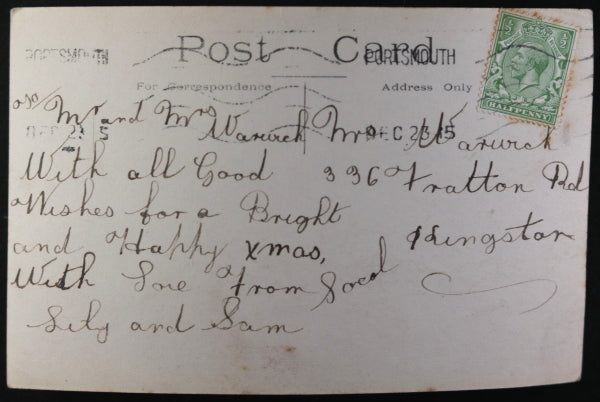 PORTSMOUTH
Post Card
PORTSMOUTH
½ ½
HALFPENNY
For Correspondence
Address Only
DEC 23 15
DEC 23 15
To Mr and Mrs Warwick
With all Good
Wishes for a Bright
and Happy xmas,
With Love From
Lily and Sam
Mrs Warwick
336 Fratton Rd
Kingston